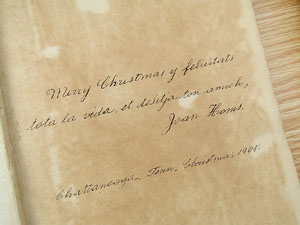 Merry Christmas y felicitats
tota la vida, et desitja ton amich,
Joan Homs.
Chattanooga, Tenn, Christmas, 1908.